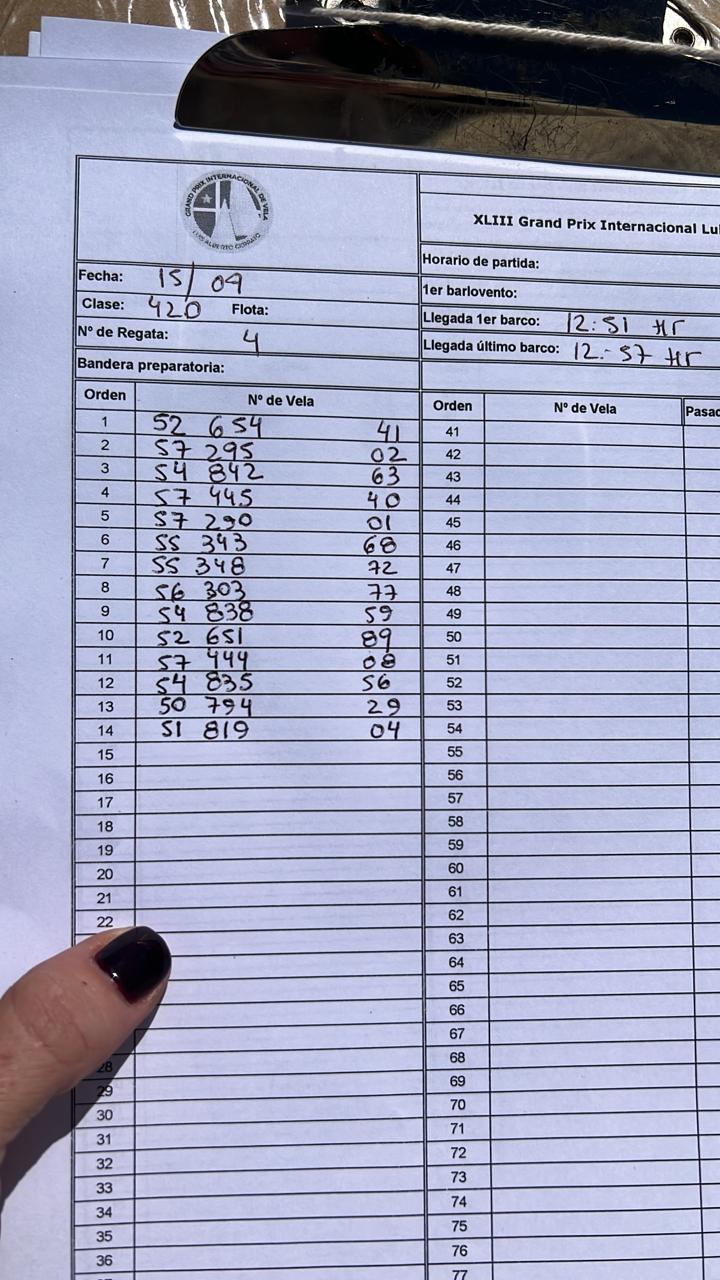 GRAND PRIX INTERNACIONAL DE VELA
XLIII Grand Prix Internacional Lu
Fecha: 15/09
Clase: 420 Flota:
Nº de Regata: 4
Bandera preparatoria:
Horario de partida:
1er barlovento:
Llegada 1er barco: 12:51 Hr
Llegada último barco: 12:57 Hr
Orden Nº de Vela
1 52 654 41
2 57 295 02
3 54 842 63
4 57 445 40
5 57 290 01
6 55 343 68
7 55 348 72
8 56 303 77
9 54 838 59
10 52 651 89
11 57 444 08
12 54 835 56
13 50 794 29
14 51 819 04
15
16
17
18
19
20
21
22
28
29
30
31
32
33
34
35
36
Orden Nº de Vela Pasad
41
42
43
44
45
46
47
48
49
50
51
52
53
54
55
56
57
58
59
60
61
62
63
64
65
66
67
68
69
70
71
72
73
74
75
76
77